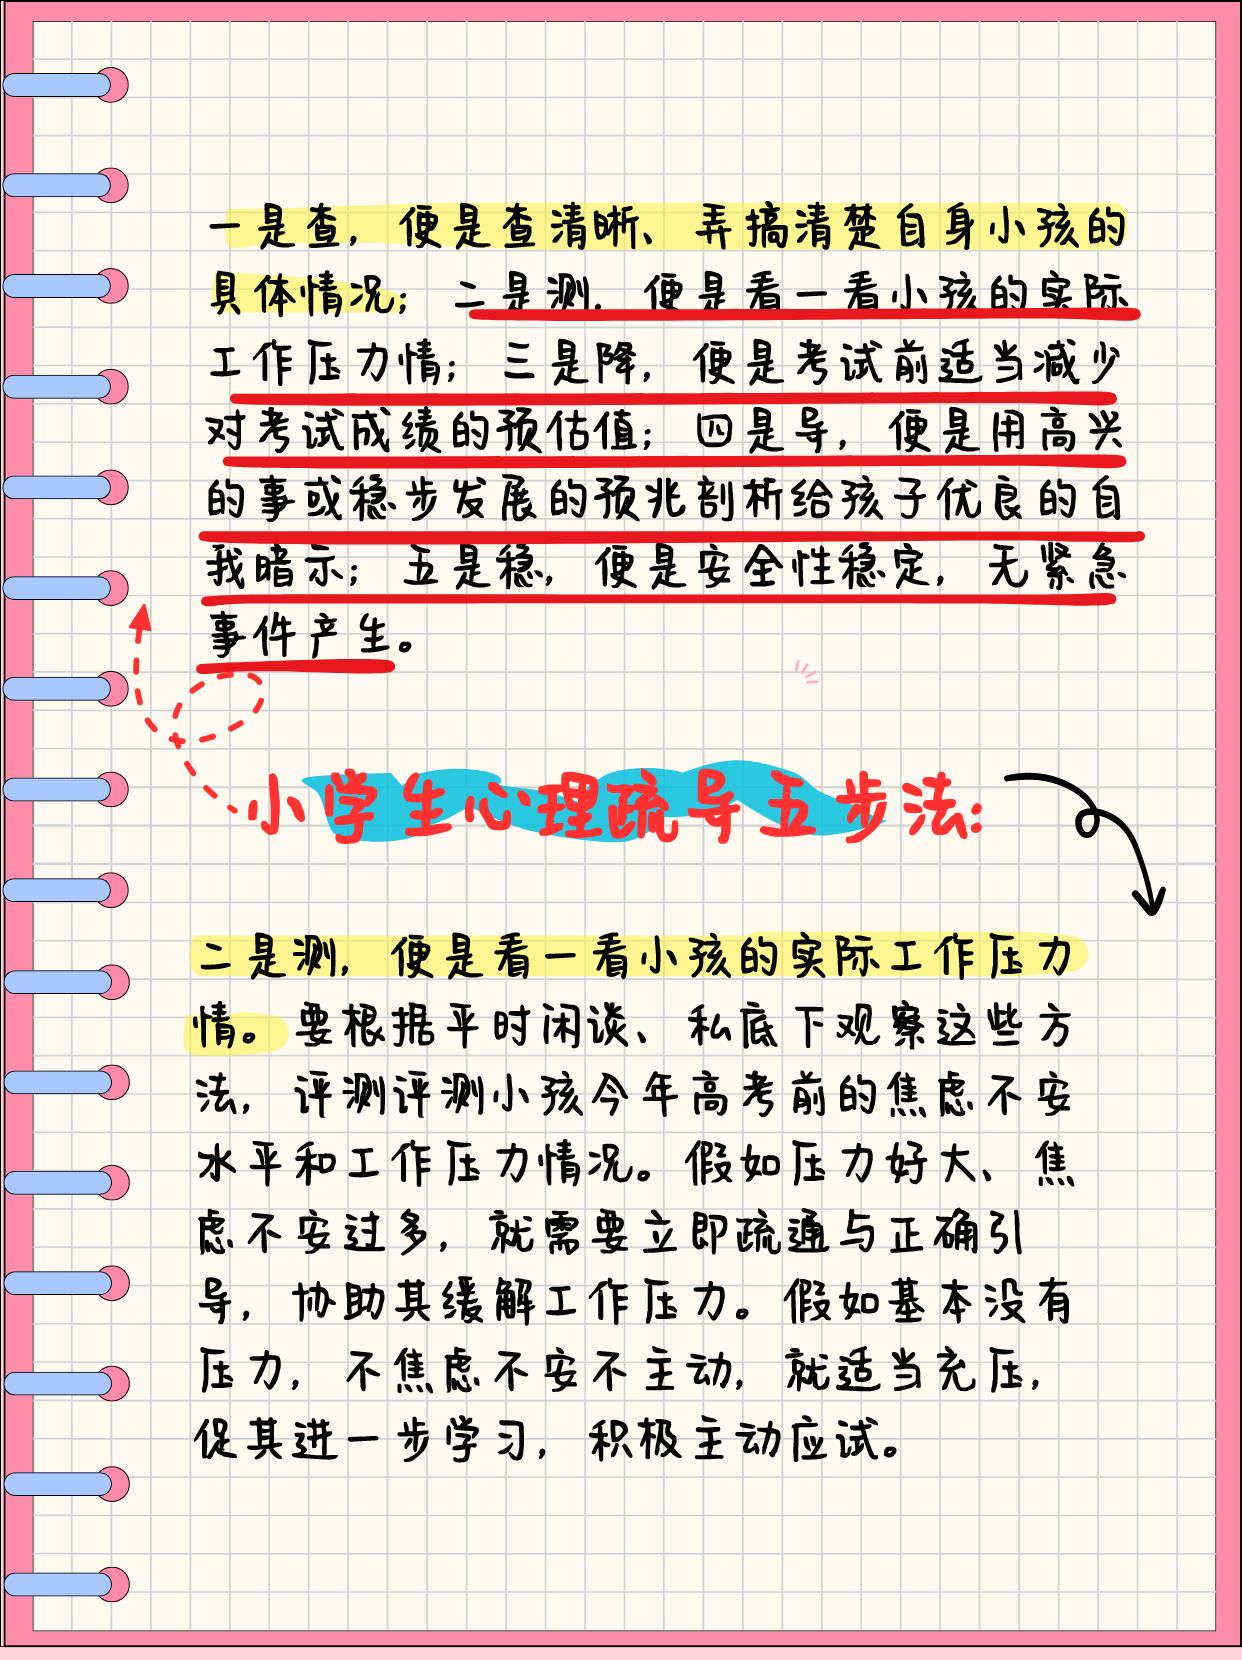 一是查，便是查清晰、弄搞清楚自身小孩的
具体情况；二是测，便是看一看小孩的实际
工作压力情；三是降，便是考试前适当减少
对考试成绩的预估值；四是导，便是用高兴
的事或稳步发展的预兆剖析给孩子优良的自
我暗示；五是稳，便是安全性稳定，无紧急
事件产生。
小学生心理疏导五步法：
二是测，便是看一看小孩的实际工作压力
情。要根据平时闲谈、私底下观察这些方
法，评测评测小孩今年高考前的焦虑不安
水平和工作压力情况。假如压力好大、焦
虑不安过多，就需要立即疏通与正确引
导，协助其缓解工作压力。假如基本没有
压力，不焦虑不安不主动，就适当充压，
促其进一步学习，积极主动应试。